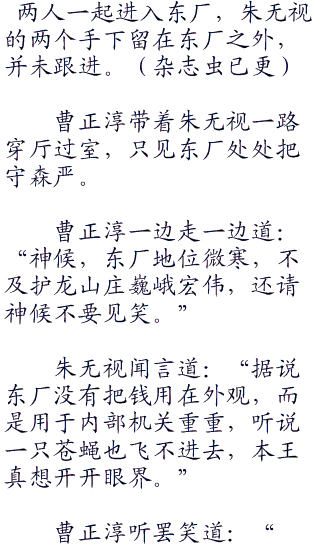 两人一起进入东厂，朱无视
的两个手下留在东厂之外，
并未跟进。（杂志虫已更）
曹正淳带着朱无视一路
穿厅过室，只见东厂处处把
守森严。
曹正淳一边走一边道：
“神候，东厂地位微寒，不
及护龙山庄巍峨宏伟，还请
神候不要见笑。”
朱无视闻言道：“据说
东厂没有把钱用在外观，而
是用于内部机关重重，听说
一只苍蝇也飞不进去，本王
真想开开眼界。”
曹正淳听罢笑道：“